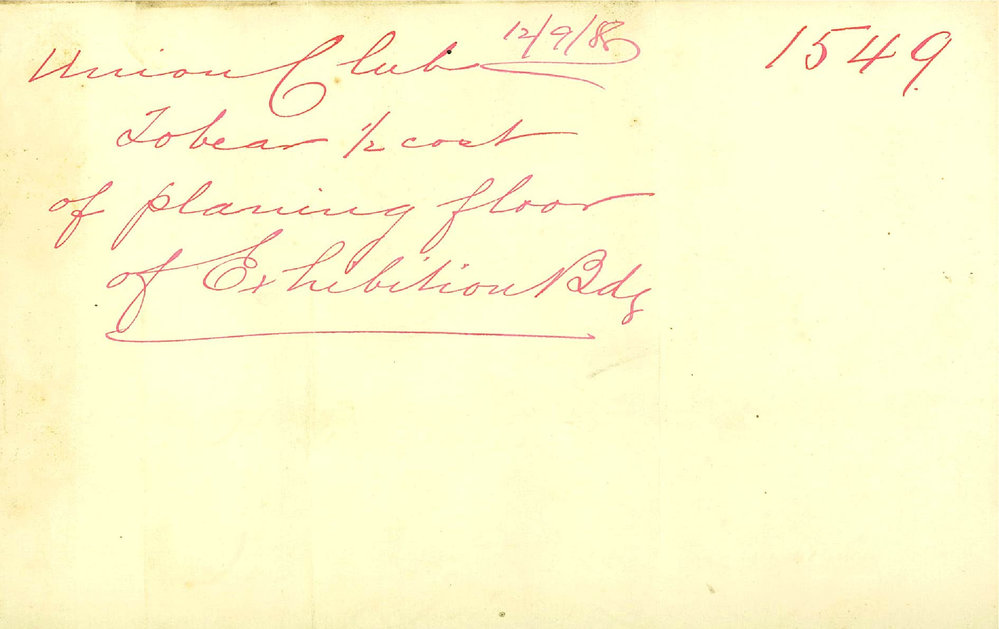 Union Club 12/9/86 1549
To bear 1/2 cost
of planing floor
of Exhibition Bdg